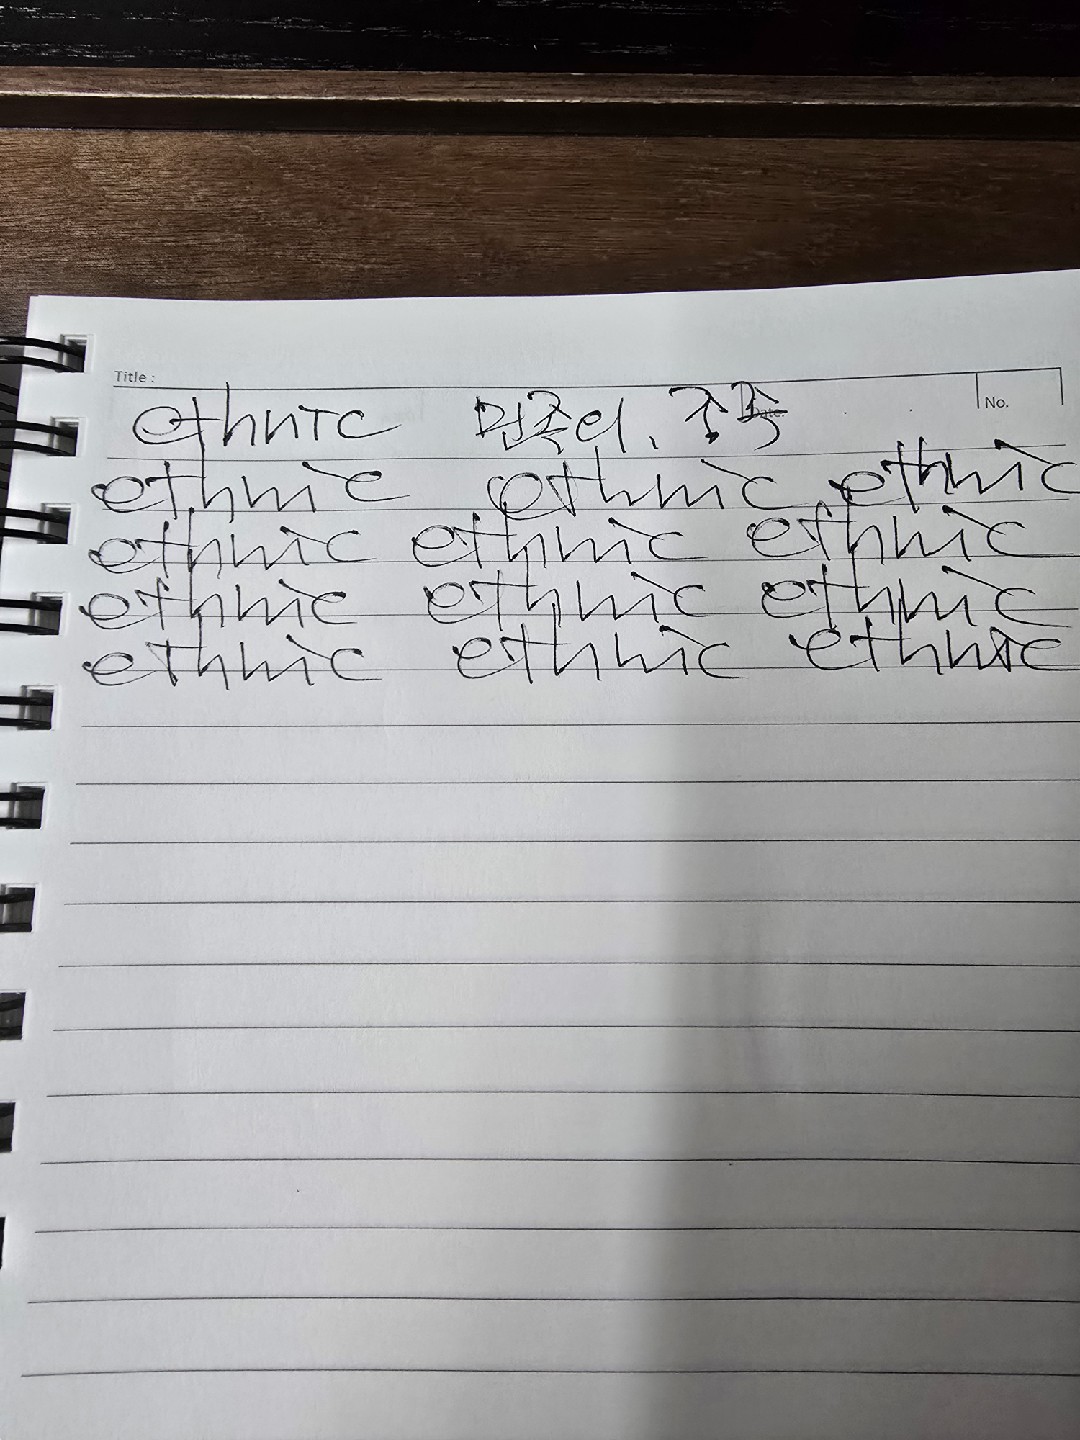 Title :
No.
ethnic 민족의, 종족
Date.
ethnic ethnic ethnic
ethnic ethnic ethnic
ethnic ethnic ethnic
ethnic ethnic ethnic